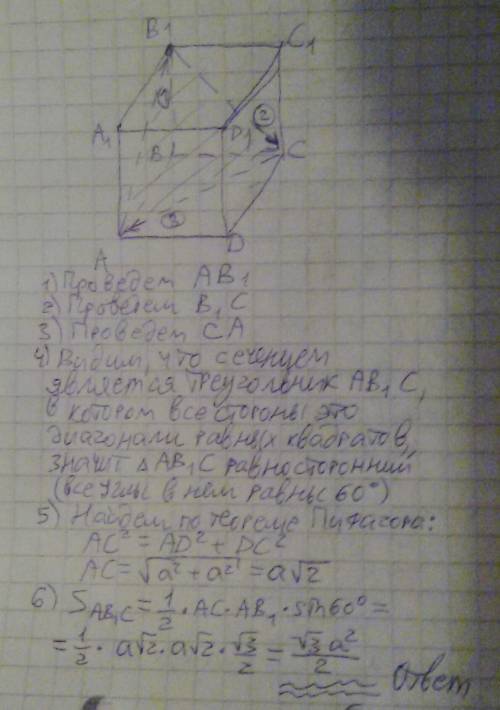 B1
C1
A1
D1
B
②
C
③
D
A
1) Проведем AB1
2) Проведем B1C
3) Проведем CA
4) Видим, что сечением
является треугольник AB1C,
в котором все стороны это
диагонали равных квадратов,
значит △ AB1C равносторонний
(все углы в нем равны 60°)
5) Найдем по теореме Пифагора:
AC² = AD² + DC²
AC = √a² + a² = a√2
6) S AB1C = 1/2 · AC · AB1 · sin60° =
= 1/2 · a√2 · a√2 · √3/2 = √3 a²/2
Ответ